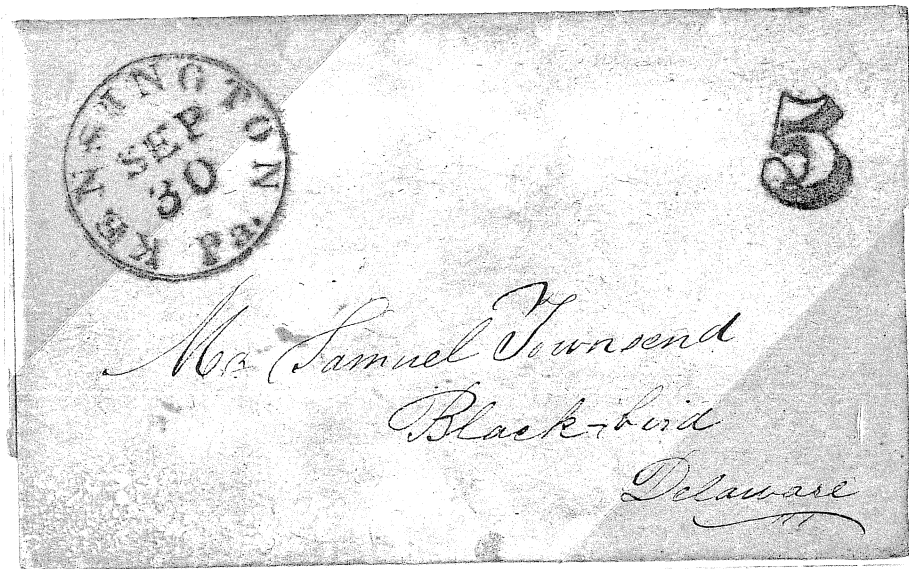 KENSINGTON Pa.
SEP
30
5
Mr Samuel Townsend
Black-bird
Delaware